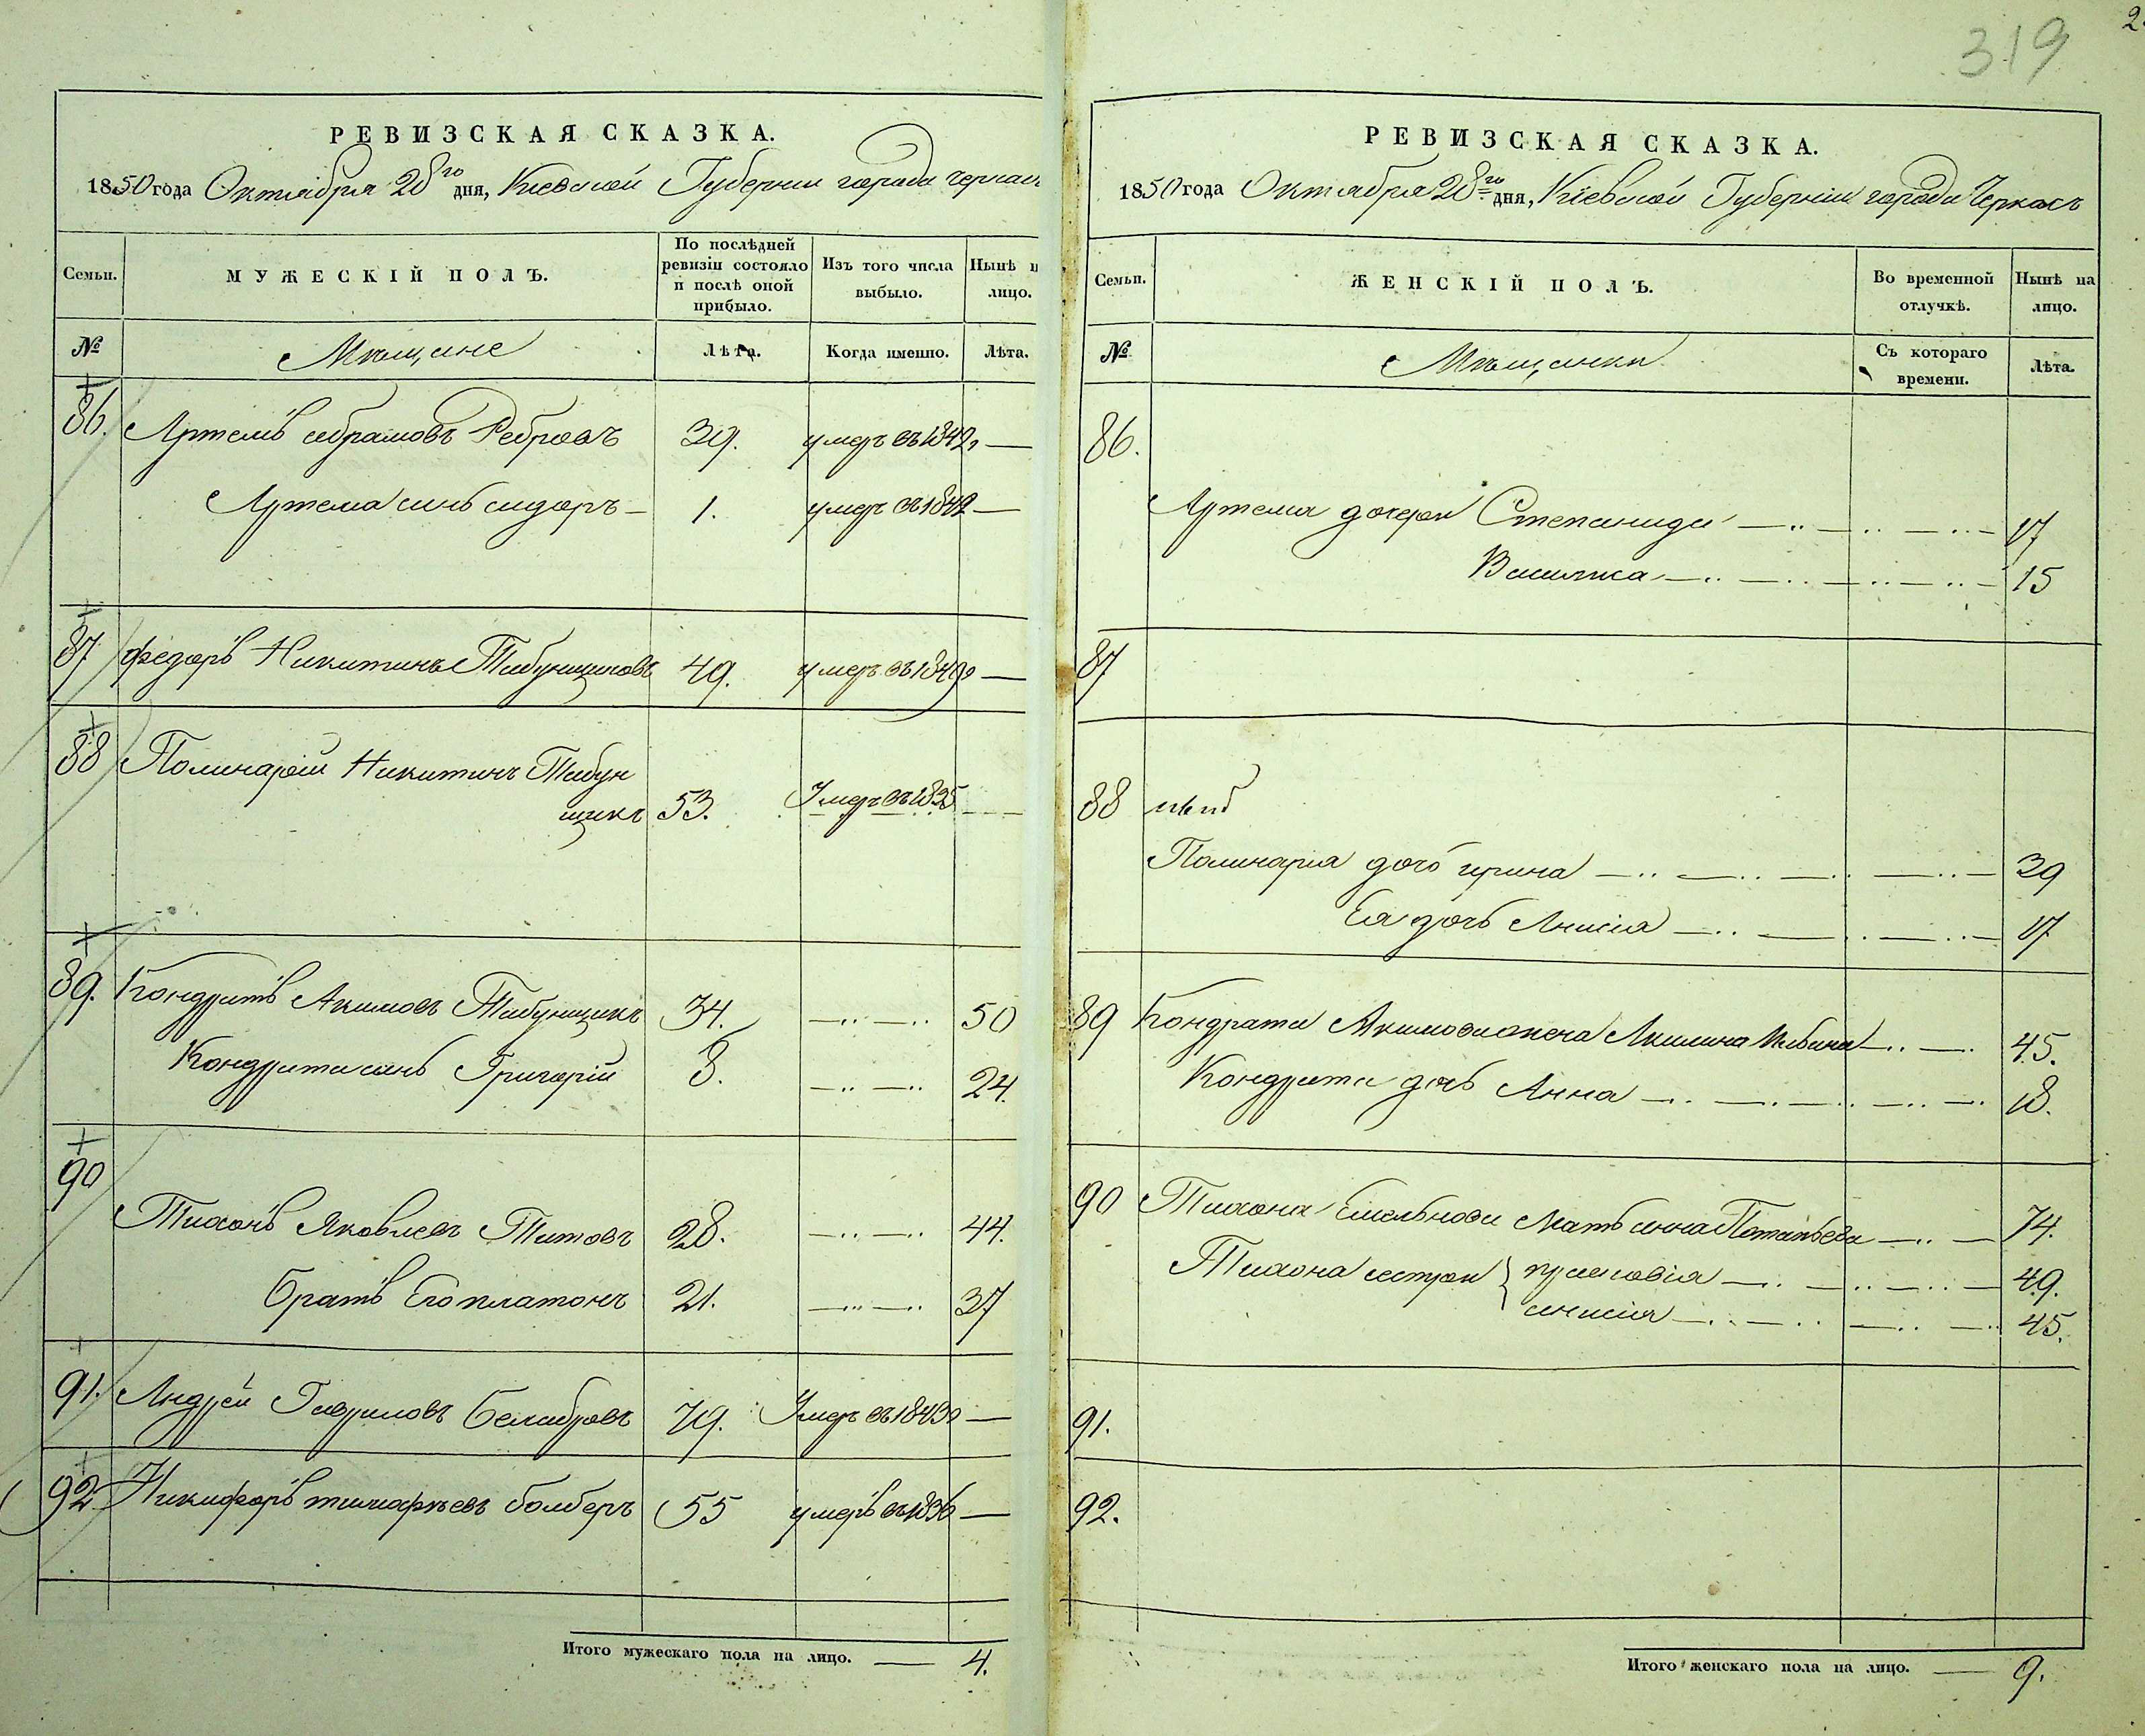 319
2
РЕВИЗСКАЯ СКАЗКА.
1850 года Октября 28го дня, Киевской Губернии города Черкас
Семьи.
МУЖЕСКІЙ ПОЛЪ.
По послѣдней ревизіи состояло и послѣ оной прибыло.
Изъ того числа выбыло.
Нынѣ н лицо.
№
Мѣщане
Лѣта.
Когда именно.
Лѣта.
86. Артемъ Абрамовъ Ребровъ 39. умеръ въ 1842 —
Артема сынъ сидоръ — 1. умеръ въ 1842 —
87 Федоръ Никитинъ Табунщиковъ 49. умеръ въ 1849 —
88 Полинарій Никитинъ Табун
щикъ 53. Умеръ въ 1835
89. Кондратъ Акимовъ Табунщикъ 34. 50
Кондрата сынъ Григорій 8. 24.
90
Тихонъ Яковлевъ Титовъ 28. 44.
Братъ Его платонъ 21. 37
91. Андрей Гавриловъ Белабровъ 79. Умеръ въ 1843 —
92. Никифоръ тимофѣевъ болберъ 55 умеръ въ 1836 —
Итого мужескаго пола на лицо. — 4.
РЕВИЗСКАЯ СКАЗКА.
1850 года Октября 28го дня, Кіевской Губерніи города Черкасъ
Семьи.
ЖЕНСКІЙ ПОЛЪ.
Во временной отлучкѣ.
Нынѣ на лицо.
№
Мѣщанки
Съ котораго времени.
Лѣта.
86.
Артема дочери Степанида 17
Василиса 15
87
88
Полинарія дочь ирина 39
Ея дочь Анисія 17
89 Кондрата Акимова жена Акилина Ильина 45.
Кондрата дочь Анна 18.
90 Тихона Емельнова Мать анна Потапьева 74.
Тихона сестры прасковія 49.
анисія 45.
91.
92.
Итого женскаго пола на лицо. — 9.